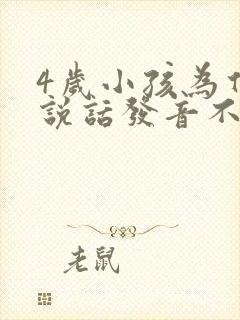 4歲小孩為什
說話發音不
老鼠